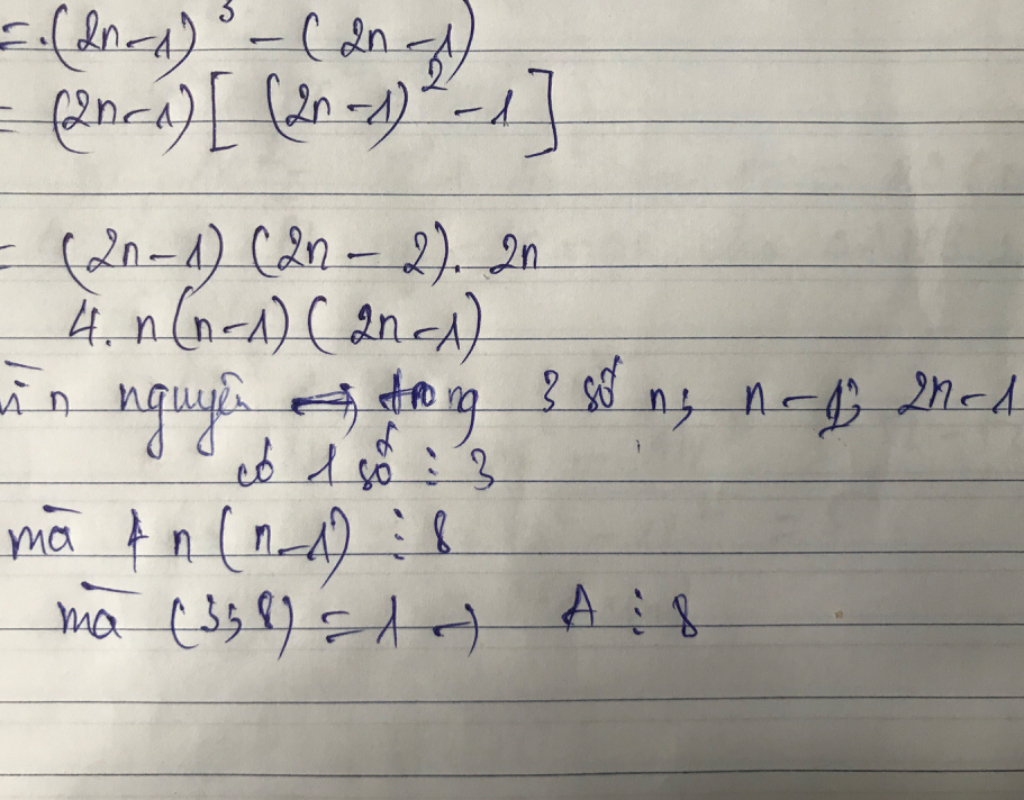 =.(2n-1)³ - (2n-1)
= (2n-1)[(2n-1)² - 1]
= (2n-1)(2n-2). 2n
4. n(n-1)(2n-1)
n nguyên trong 3 số n; n-1; 2n-1
có 1 số ⋮ 3
mà 4 n(n-1) ⋮ 8
mà (3;8) = 1 → A ⋮ 8